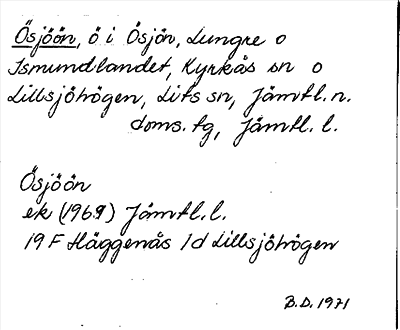 Ösjöön, ö i Ösjön, Lungre o
Ismundlandet, Kyrkås sn o
Lillsjöhögen, Lits sn, Jämtl. n.
doms. tg, Jämtl. l.
Ösjöön
ek (1969) Jämtl. l.
19 F Häggenås 1d Lillsjöhögen
B.D. 1971